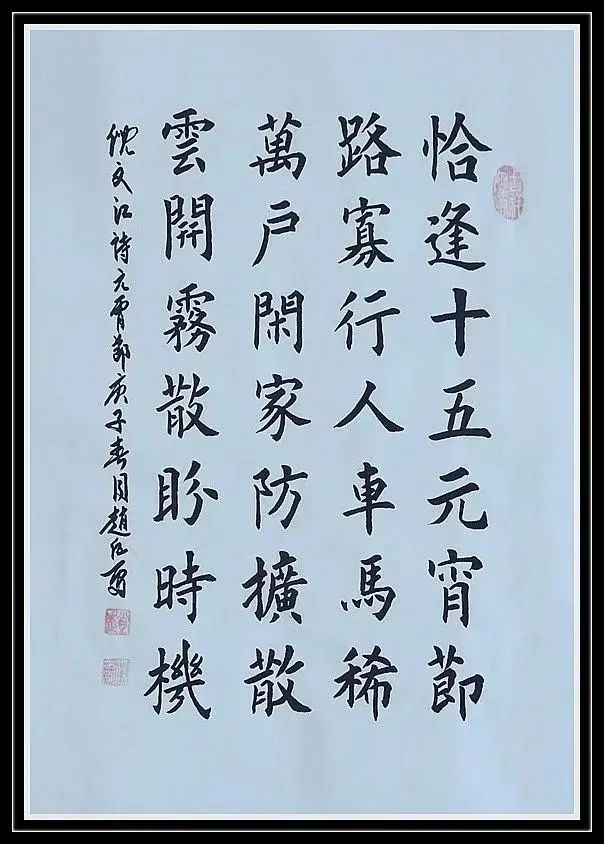 恰逢十五元宵節
路寡行人車馬稀
萬戶閑家防擴散
雲開霧散盼時機
倪文江詩元宵節庚子春月趙